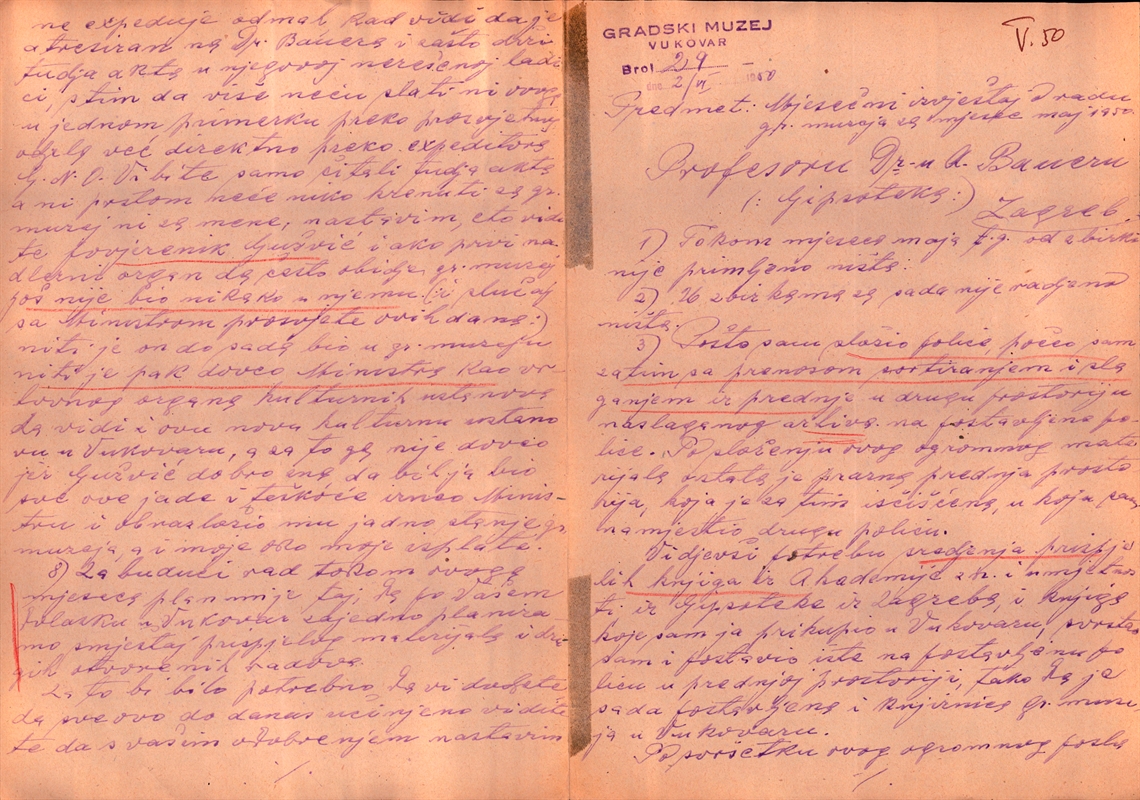 ne expeduje odmah kad vidi da je
adresiran na Dr. Bauera i zašto drži
tudja akta u njegovoj nerešenoj ladi
ci, s tim da više neću slati ni ovog
u jednom primerku preko prosvjetnog
odjela već direktno preko expeditora
G.N.O. Vi bite samo čitali tudja akta
a ni prstom neće niko krenuti za gr.
muzej ni za mene, nastavim, eto vidi
te povjerenik Gužvić i ako prvi na
dležni organ da često obidje gr. muzej
još nije bio nikako u njemu (: i slučaj
sa Ministrom prosvjete ovih dana:)
niti je on do sada bio u gr. muzeju
niti je pak doveo Ministra kao vr
hovnog organa kulturnih ustanova
da vidi i ovu novu kulturnu ustano
vu u Vukovaru, a za to ga nije doveo
jer Gužvić dobro zna da bih ja bio
sve ove jade i teškoće izneo Minis-
tru i obrazložio mu jadno stanje gr.
muzeja, a i moje oko moje isplate.
8) Za budući rad tokom ovoga
mjeseca plan mi je taj, da po Vašem
dolasku u Vukovar zajedno planira
mo smještaj prispjelog materijala i dr
gih otvorenih radova.
Za to bi bilo potrebno, da vi dodjete
da sve ovo do danas učinjeno vidite
te da s vašim odobrenjem nastavim
./.
GRADSKI MUZEJ
VUKOVAR
Broj 29
dne 2/VI 1950
V. 50
Predmet: Mjesečni izvještaj o radu
gr. muzeja za mjesec maj 1950.
Profesoru Dr-u A. Baueru
(: Gipsoteka:)
Zagreb.
1) Tokom mjeseca maja t.g. od zbirki
nije primljeno ništa.
2) Na zbirkama za sada nije radjeno
ništa.
3) Pošto sam složio police, počeo sam
zatim sa prenosom sortiranjem i sla
ganjem iz prednje u drugu prostoriju
naslaganog arhiva na postavljene po-
lice. Po složenju ovog ogromnog mate
rijala ostala je prazna prednja prosto
rija, koja je za tim iščišćena, u koju sam
namjestio drugu policu.
Vidjevši potrebu sredjenja prispje
lih knjiga iz Akademije zn. i umjetnos
ti iz Gipsoteke iz Zagreba, i knjiga
koje sam ja prikupio u Vukovaru, svrstao
sam i postavio iste na postavljenu po
licu u prednjoj prostoriji, tako da je
sada postavljena i knjižnica gr. muze
ja u Vukovaru.
Po svršetku ovog ogromnog posla
./.